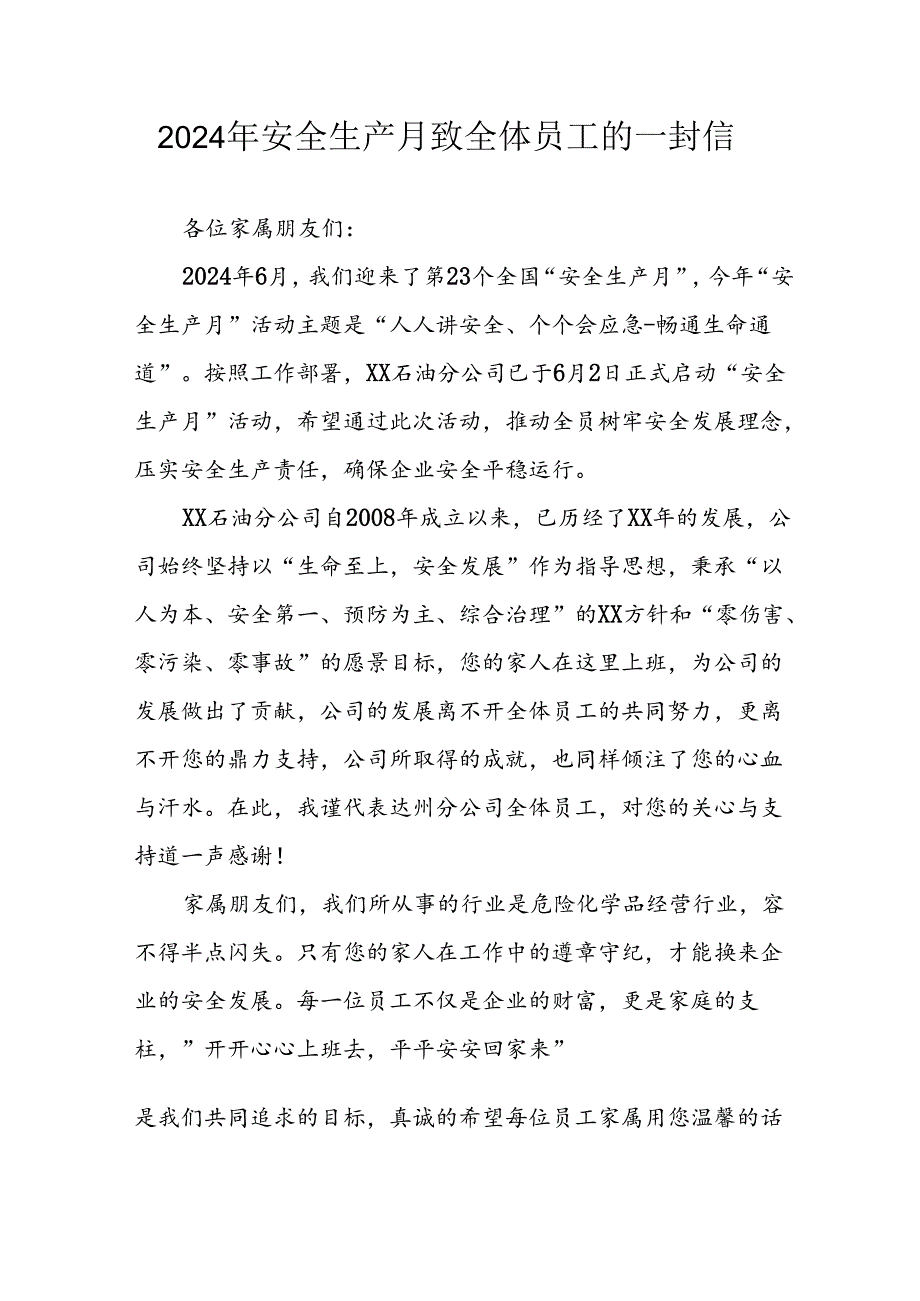 2024年安全生产月致全体员工的一封信
各位家属朋友们：
2024年6月，我们迎来了第23个全国“安全生产月”，今年“安
全生产月”活动主题是“人人讲安全、个个会应急-畅通生命通
道”。按照工作部署，XX石油分公司已于6月2日正式启动“安全
生产月”活动，希望通过此次活动，推动全员树牢安全发展理念，
压实安全生产责任，确保企业安全平稳运行。
XX石油分公司自2008年成立以来，已历经了XX年的发展，公
司始终坚持以“生命至上，安全发展”作为指导思想，秉承“以
人为本、安全第一、预防为主、综合治理”的XX方针和“零伤害、
零污染、零事故”的愿景目标，您的家人在这里上班，为公司的
发展做出了贡献，公司的发展离不开全体员工的共同努力，更离
不开您的鼎力支持，公司所取得的成就，也同样倾注了您的心血
与汗水。在此，我谨代表达州分公司全体员工，对您的关心与支
持道一声感谢！
家属朋友们，我们所从事的行业是危险化学品经营行业，容
不得半点闪失。只有您的家人在工作中的遵章守纪，才能换来企
业的安全发展。每一位员工不仅是企业的财富，更是家庭的支
柱，”开开心心上班去，平平安安回家来”
是我们共同追求的目标，真诚的希望每位员工家属用您温馨的话